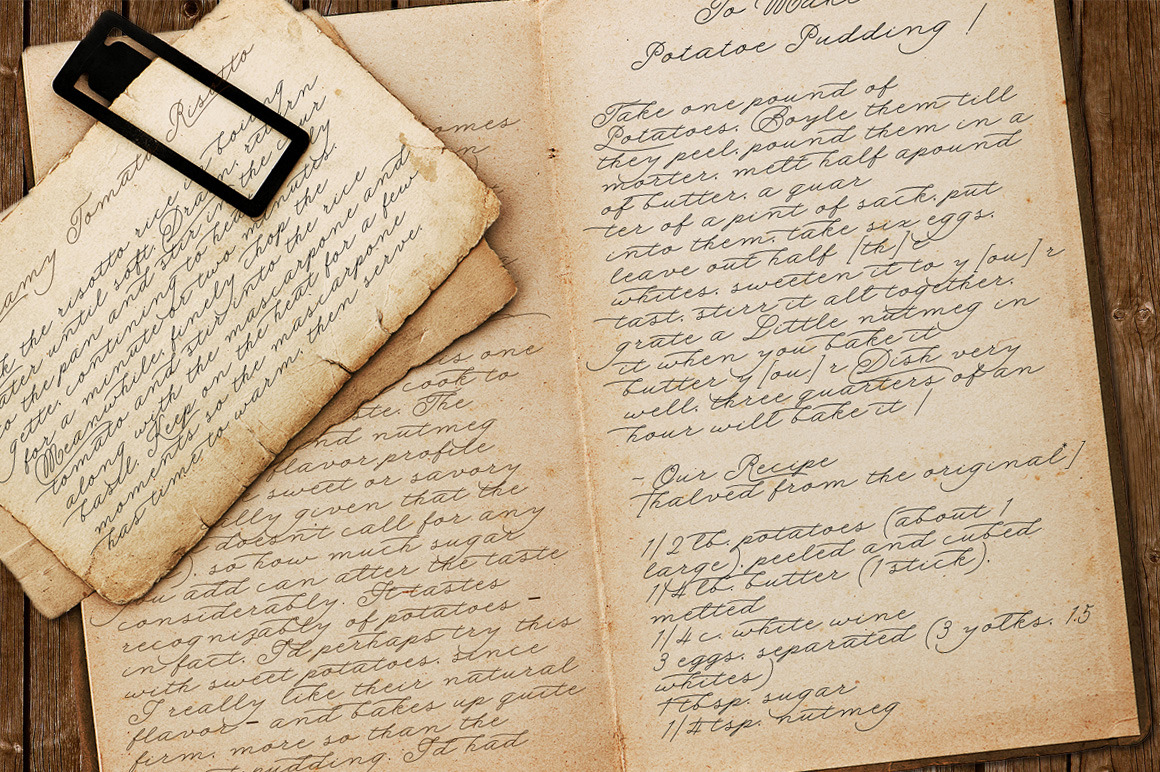 Risotto
Creamy Tomato
the risotto rice in boiling
water until soft. Drain, return
to the pan and stir in the curly
continuing to heat
for a minute or two minutes.
Meanwhile, finely chop the
tomato and stir into the rice
along with the mascarpone and
basil. Keep on the heat for a few
moments so the mascarpone
has time to warm, then serve.
is one
cook to
The
and nutmeg
flavor profile
sweet or savory
given that the
doesn't call for any
so how much sugar
add can alter the taste
considerably. It tastes
recognizably of potatoes -
in fact, I'd perhaps try this
with sweet potatoes, since
I really like their natural
flavor - and bakes up quite
firm, more so than the
pudding. I'd had
To Make
Potatoe Pudding !
Take one pound of
Potatoes, Boyle them till
they peel, pound them in a
morter, melt half apound
of butter, a quar
ter of a pint of sack, put
into them, take six eggs,
leave out half [th] e
whites, sweeten it to y [ou] r
tast, stirr it all together,
grate a Little nutmeg in
it when you bake it
butter y [ou] r Dish very
well, three quarters of an
hour will bake it !
- Our Recipe
[halved from the original*]
1/2 lb. potatoes (about 1
large), peeled and cubed
1/4 lb. butter (1 stick),
melted
1/4 c. white wine
3 eggs, separated (3 yolks, 1.5
whites)
1 tbsp. sugar
1/4 tsp. nutmeg